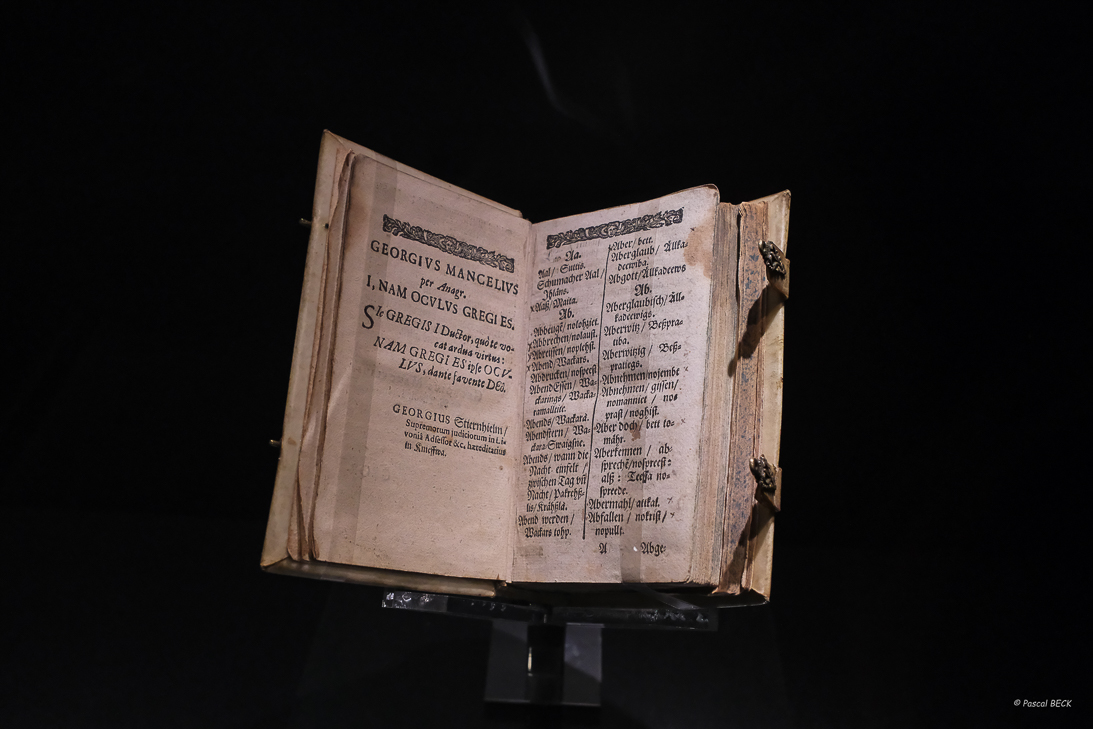 GEORGIVS MANCELIVS
per Anagr.
I, NAM OCVLVS GREGI ES.
SIc GREGIS I Ductor, quò te vo-
cat ardua virtus:
NAM GREGI ES ipse OCV-
LVS, dante favente DEo.
GEORGIUS Stiernhielm/
Supremorum judiciorum in Li-
voniâ Adsessor &c, hæreditarius
in
Aa.
Aal/ Suttis.
Schumacher Aal/
Ihlâns.
Aaß/ Maita.
Ab.
Abbeugē/ nolohzit.
Abbrechen/ nolaust.
Abreissen/ noplehst.
Abend/ Wackars.
Abdrucken/ nospeest
AbendEssen/ Wa-
ckarings/ Wacka-
Abends/ Wackarâ.
Abendstern/ Wa-
ckara-Swaigsne.
Abends/ wann die
Nacht einfelt/
zwischen Tag vñ
Nacht/ Pakrehß-
lis/ Krähßla.
Abend werden/
Wackars tohp.
Aber/ bett.
Aberglaub/ Alka-
deewiba.
Abgott/ Alkadeews
Ab.
Aberglaubisch/ Äll-
kadeewigs.
Aberwitz/ Beßpra-
tiba.
Aberwitzig/ Beß-
pratiegs.
Abnehmen/ nojembt
Abnehmen/ gissen/
nomanniet/ no-
prast/ noghist.
Aber doch/ bett to-
mähr.
Aberkennen/ ab-
sprechē/ nospreest:
alß: Teessa no-
spreede.
Abermahl/ attkal.
Abfallen/ nokrist/
nopullt.
A Abge-
© Pascal BECK